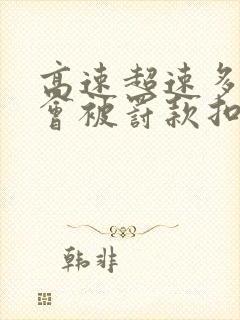 高速超速多
会被罚款扣
韩非